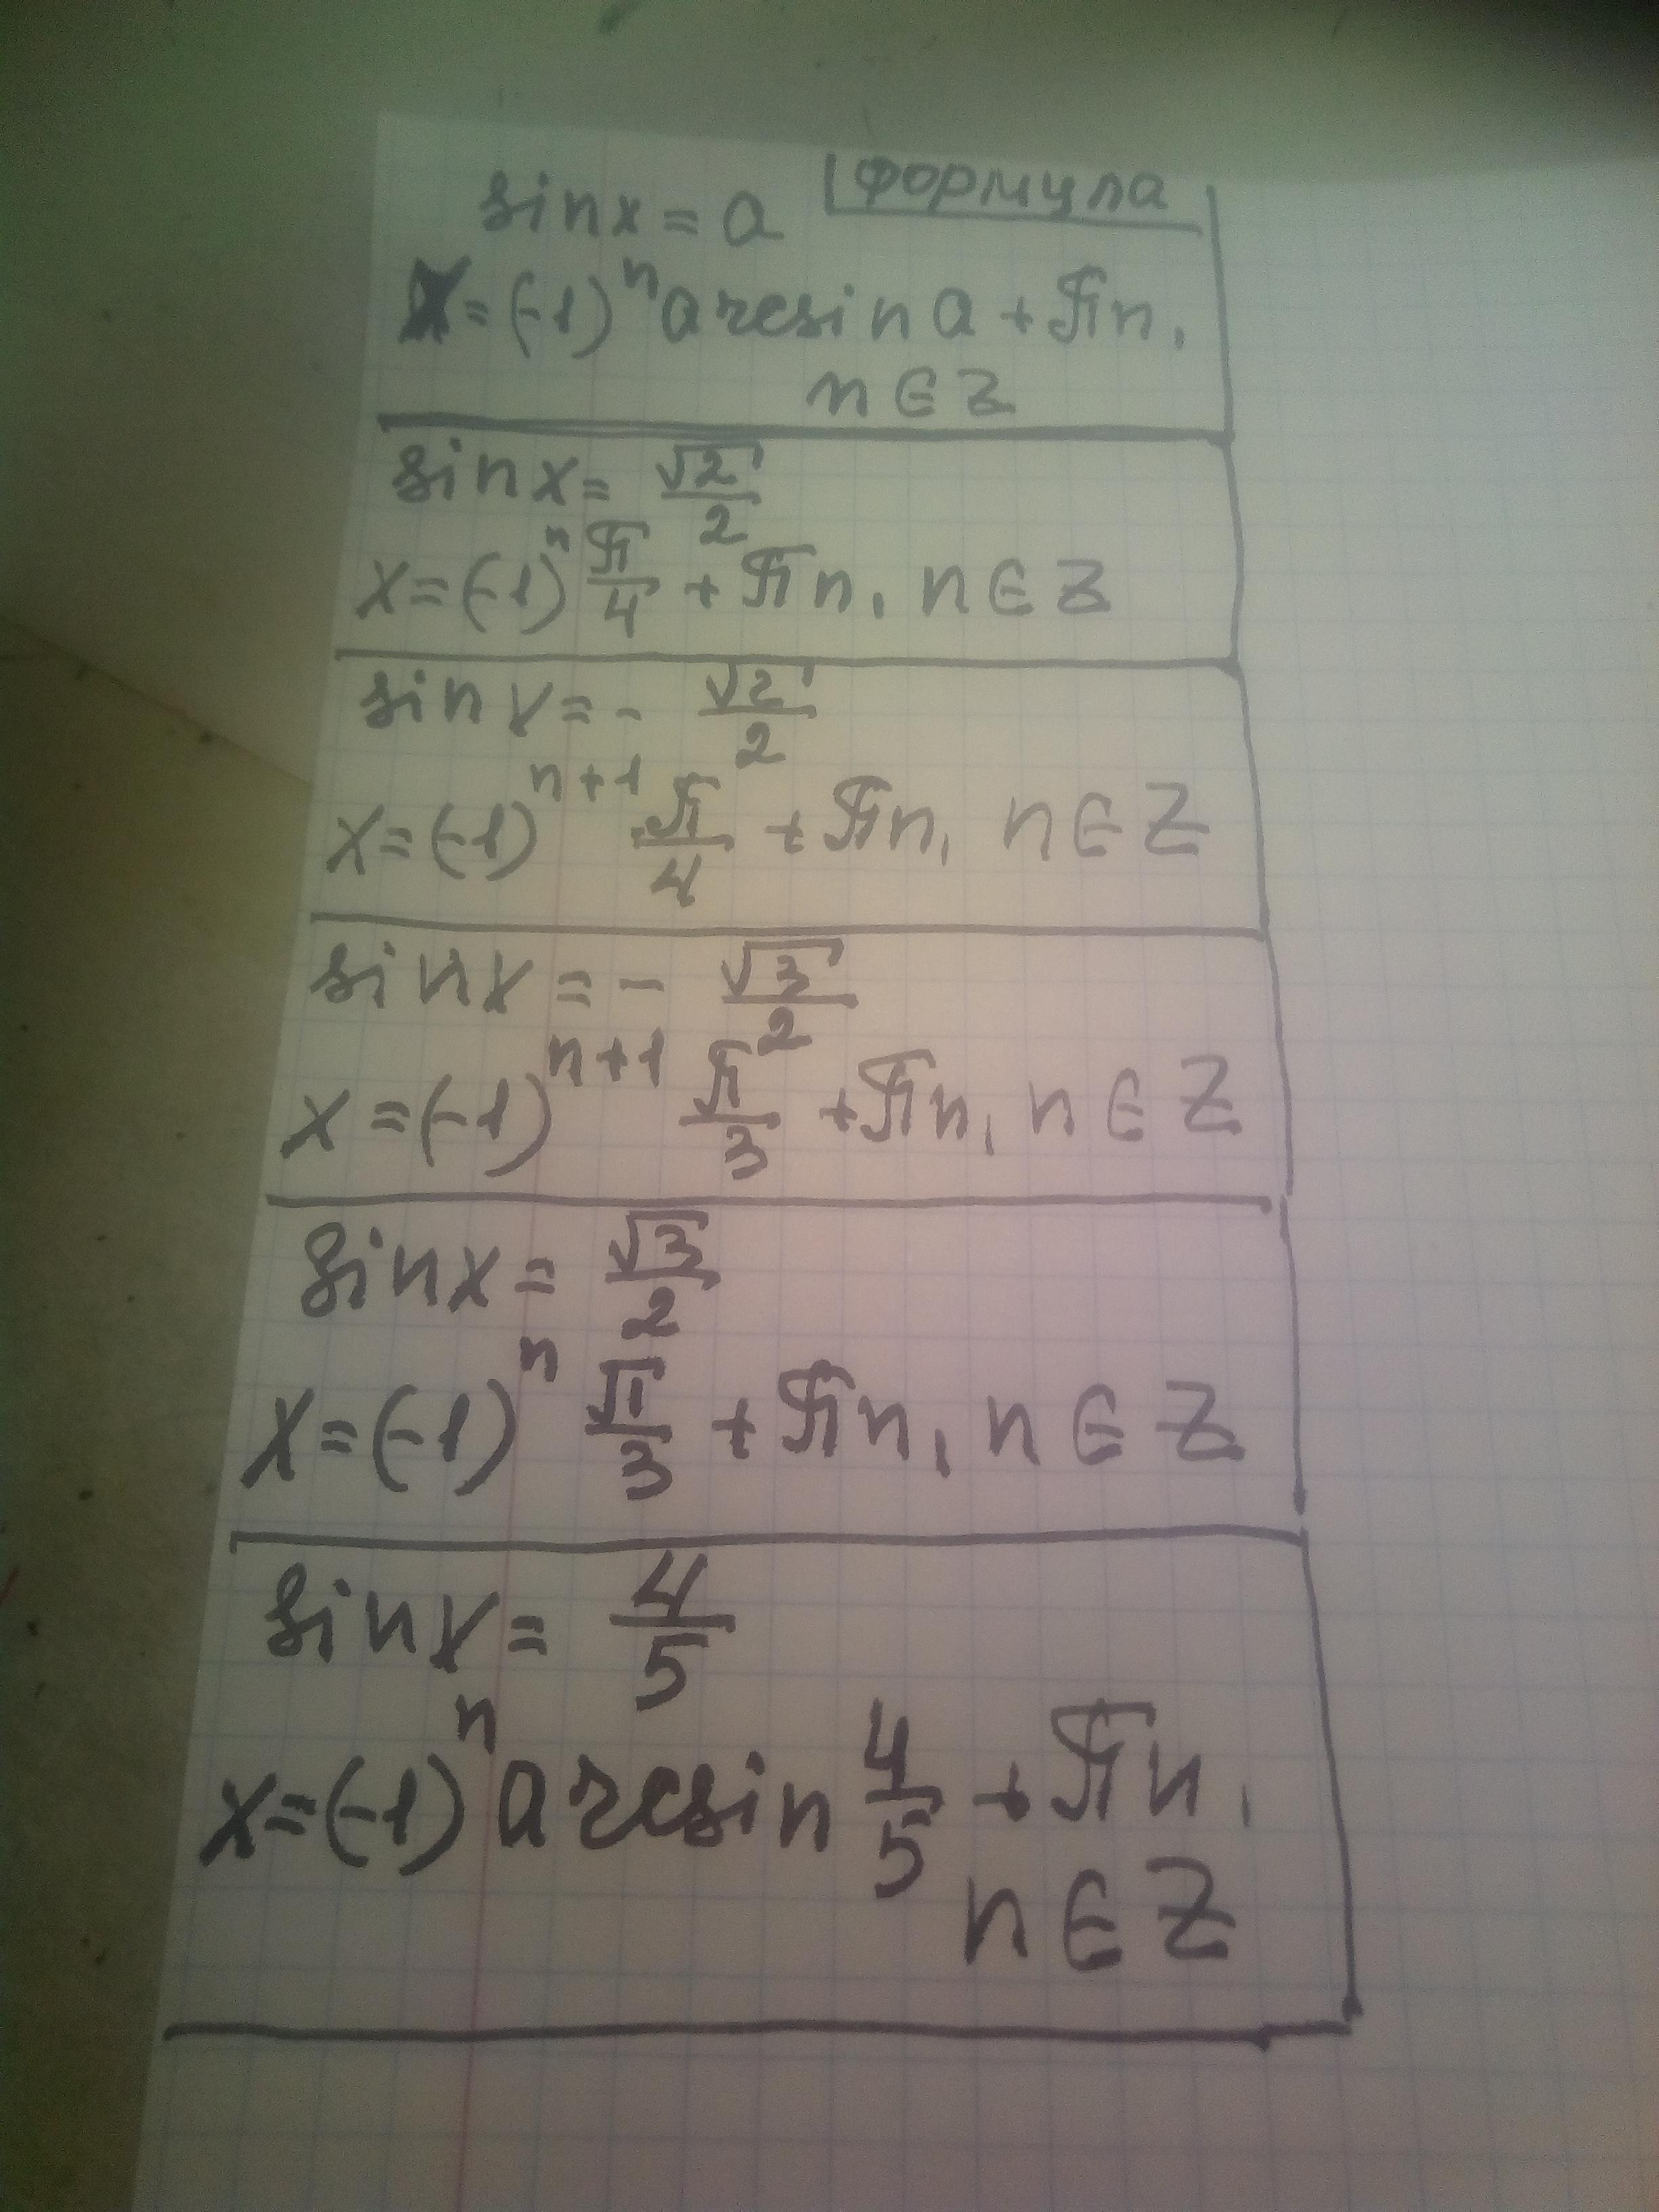 sinx = a формула
x = (-1)ⁿ arcsin a + πn,
n ∈ Z
sinx = √2/2
x = (-1)ⁿ π/4 + πn, n ∈ Z
sinx = - √2/2
x = (-1)ⁿ⁺¹ π/4 + πn, n ∈ Z
sinx = - √3/2
x = (-1)ⁿ⁺¹ π/3 + πn, n ∈ Z
sinx = √3/2
x = (-1)ⁿ π/3 + πn, n ∈ Z
sinx = 4/5
x = (-1)ⁿ arcsin 4/5 + πn,
n ∈ Z